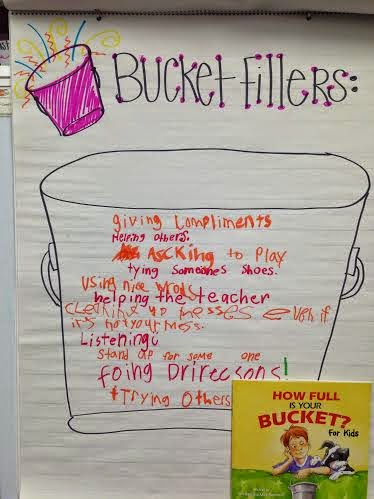 BUCKET FILLERS:
giving Compliments
Helping others.
AScKing to Play
tying Someones Shoes.
Using nice Words
helping the teacher
cleaning up messes even if
it's not your mess.
Listening
Stand up for some one
foing Drirecsons!
Trying Others
HOW FULL
IS YOUR
BUCKET?
For Kids